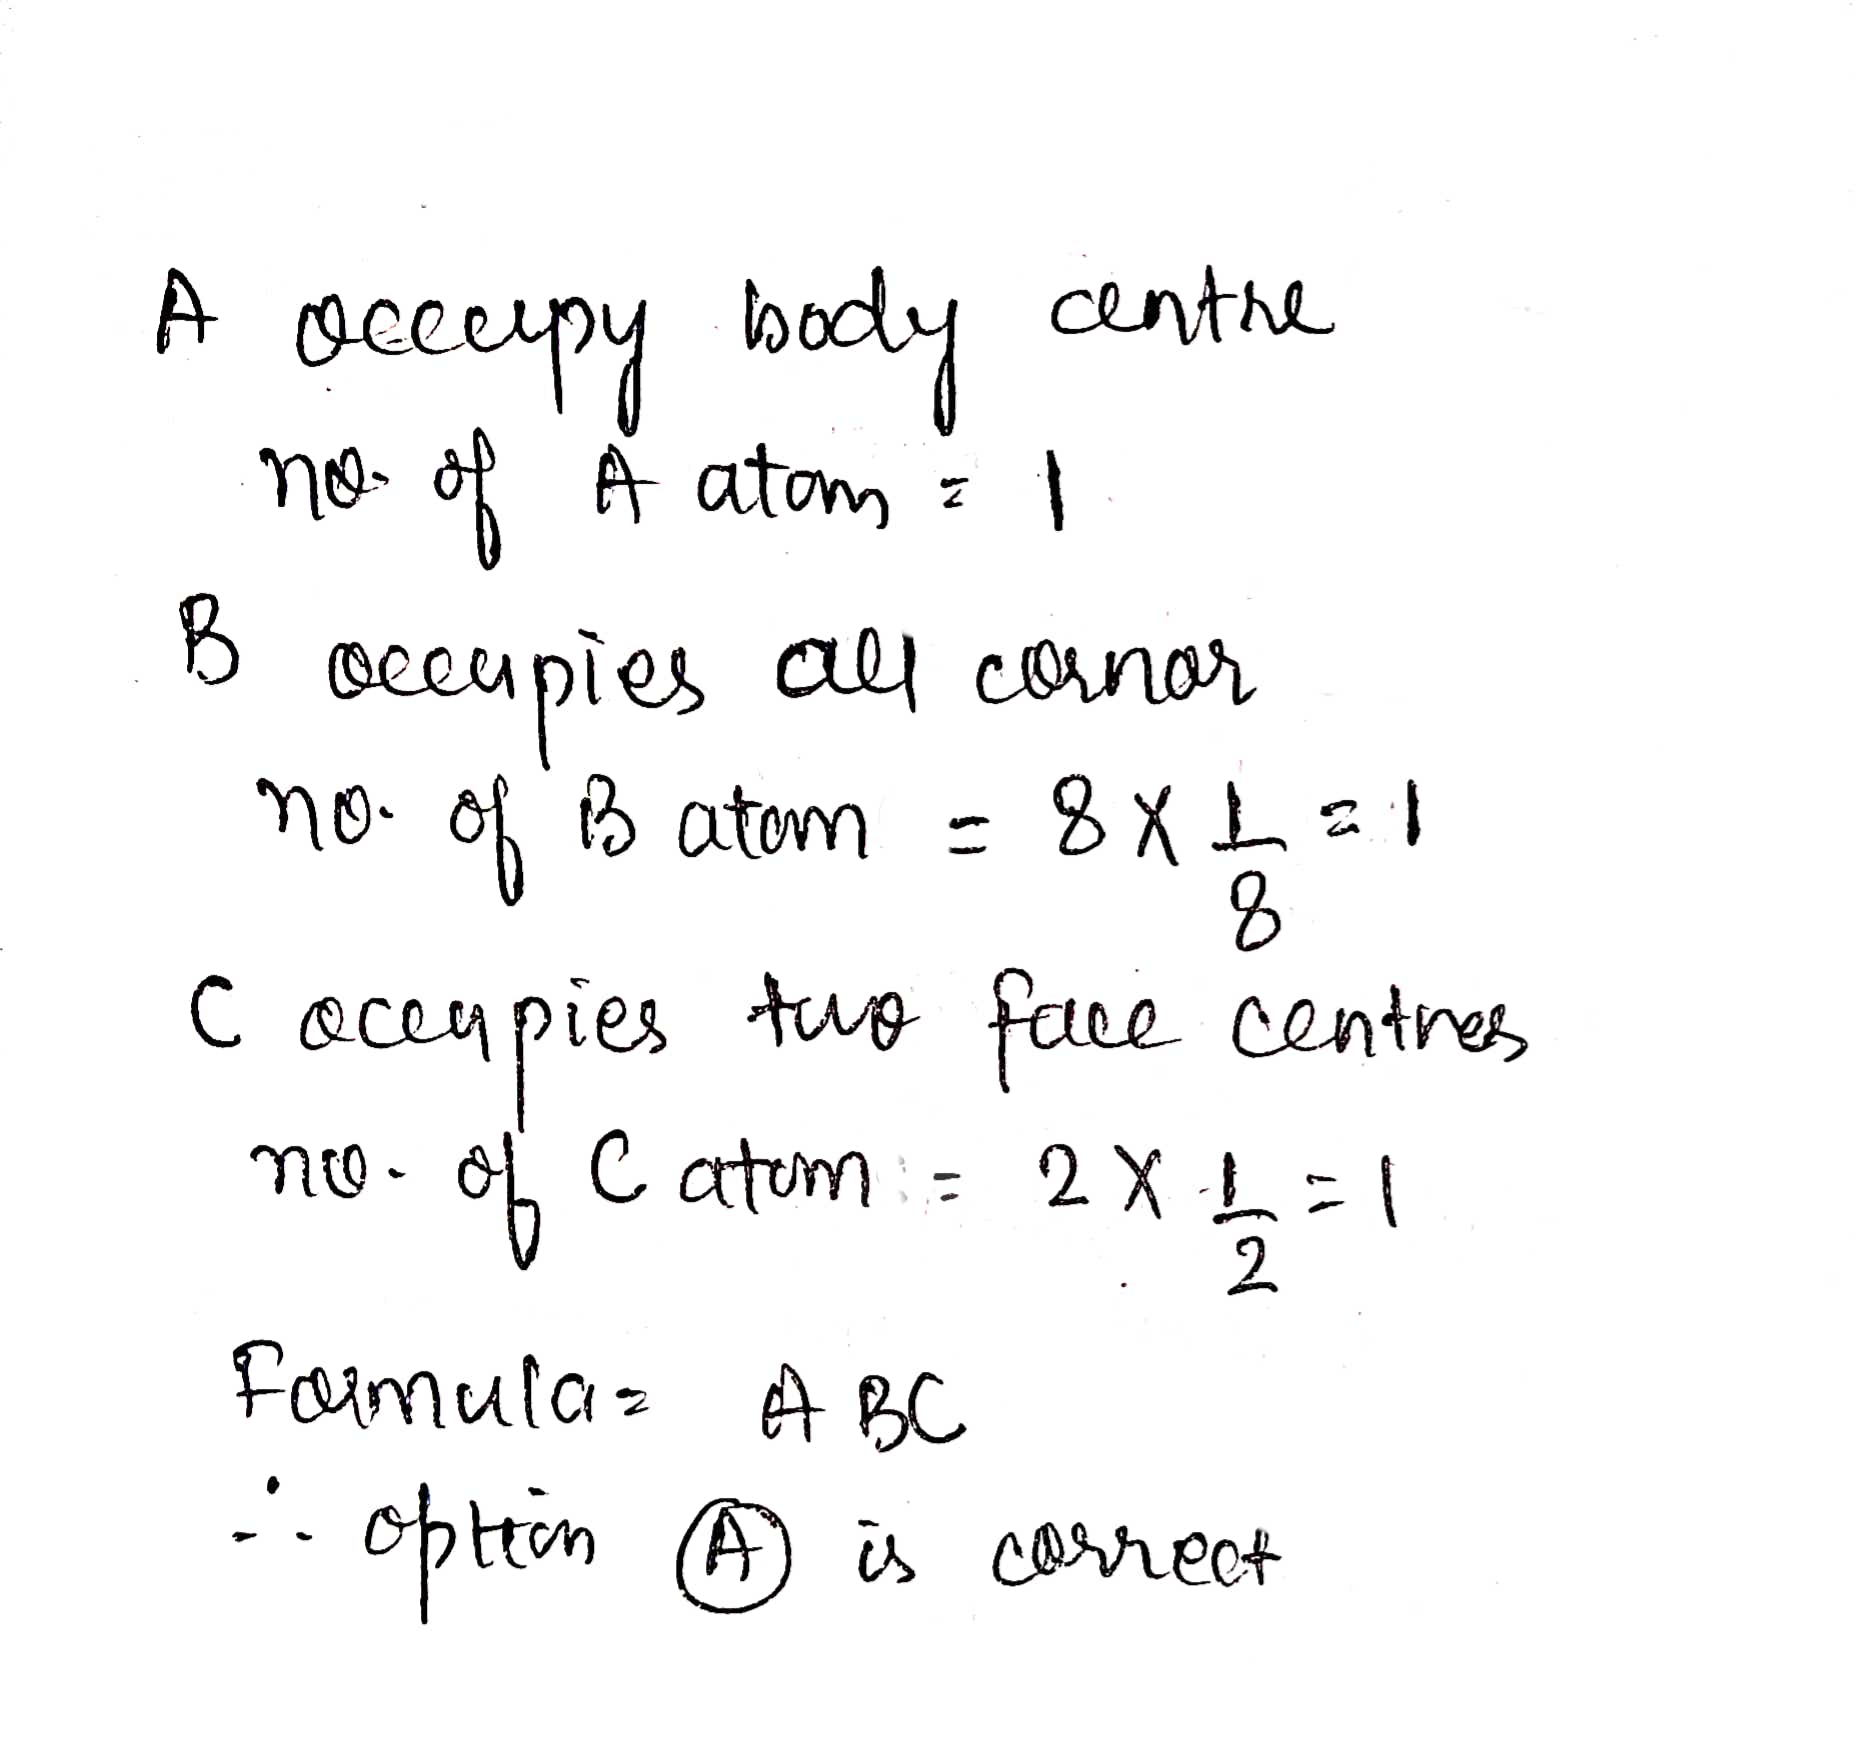 A occupy body centre
no. of A atom = 1
B occupies all cornor
no. of B atom = 8 X 1/8 = 1
C occupies two face centres
no. of C atom = 2 X 1/2 = 1
Formula = ABC
∴ option (A) is correct